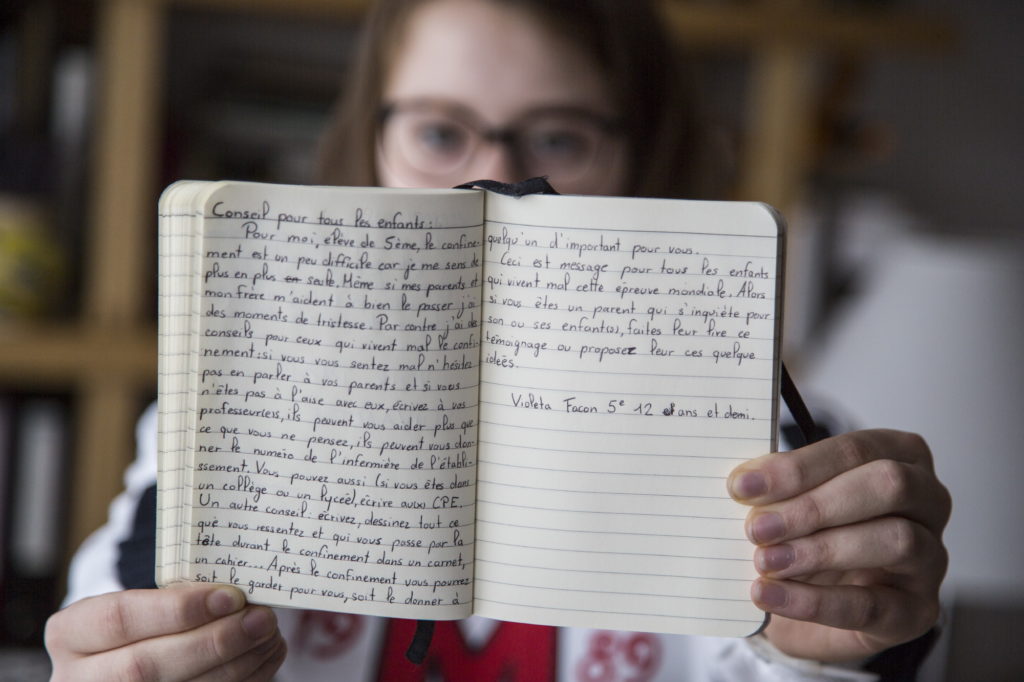 Conseil pour tous les enfants:
Pour moi, élève de 5ème, le confine-
ment est un peu difficile car je me sens de
plus en plus en seule. Même si mes parents et
mon frère m'aident à bien le passer j'ai
des moments de tristesse. Par contre j'ai des
conseils pour ceux qui vivent mal le confi-
nement: si vous vous sentez mal n'hésitez
pas en parler à vos parents et si vous
n'êtes pas à l'aise avec eux, écrivez à vos
professeur(e)s, ils peuvent vous aider plus que
ce que vous ne pensez, ils peuvent vous don-
ner le numéro de l'infermière de l'établi-
ssement. Vous pouvez aussi (si vous êtes dans
un collège ou un lycée), écrire au(x) CPE.
Un autre conseil: écrivez, dessinez tout ce
que vous ressentez et qui vous passe par la
tête durant le confinement dans un carnet,
un cahier... Après le confinement vous pourrez
soit le garder pour vous, soit le donner à
quelqu'un d'important pour vous.
Ceci est message pour tous les enfants
qui vivent mal cette épreuve mondiale. Alors
si vous êtes un parent qui s'inquiète pour
son ou ses enfant(s), faites leur lire ce
témoignage ou proposez leur ces quelque
ideés.
Violeta Facon 5e 12 ans et demi.
19 M 89